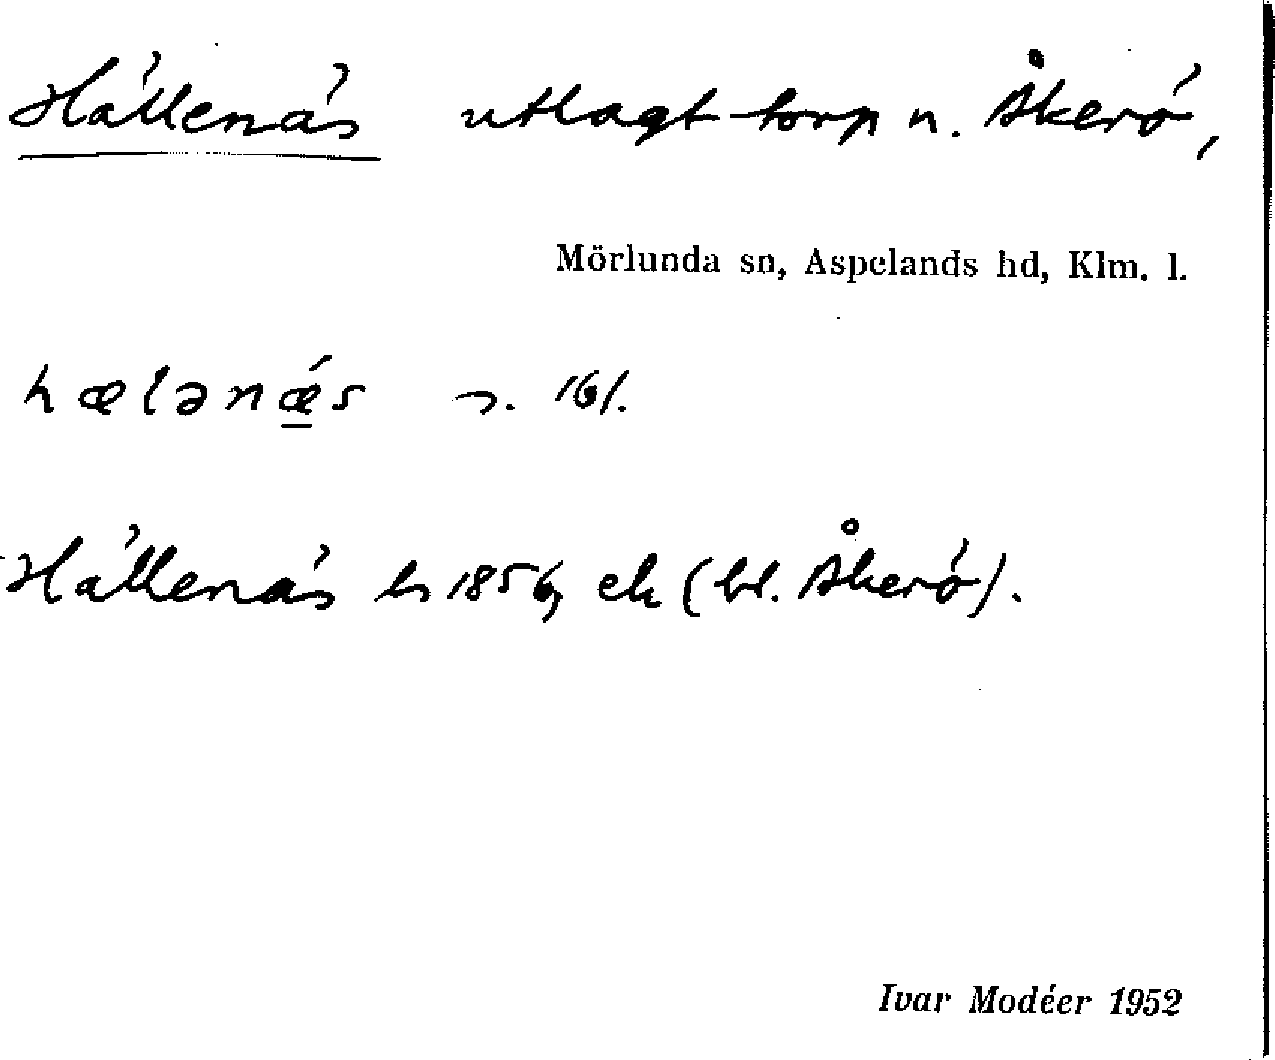 Hällenäs utlagt torp u. Åkerö,
Mörlunda sn, Aspelands hd, Klm. l.
hælənǽs 161.
Hällenäs hs 1856, ek (bl. Åkerö).
Ivar Modéer 1952